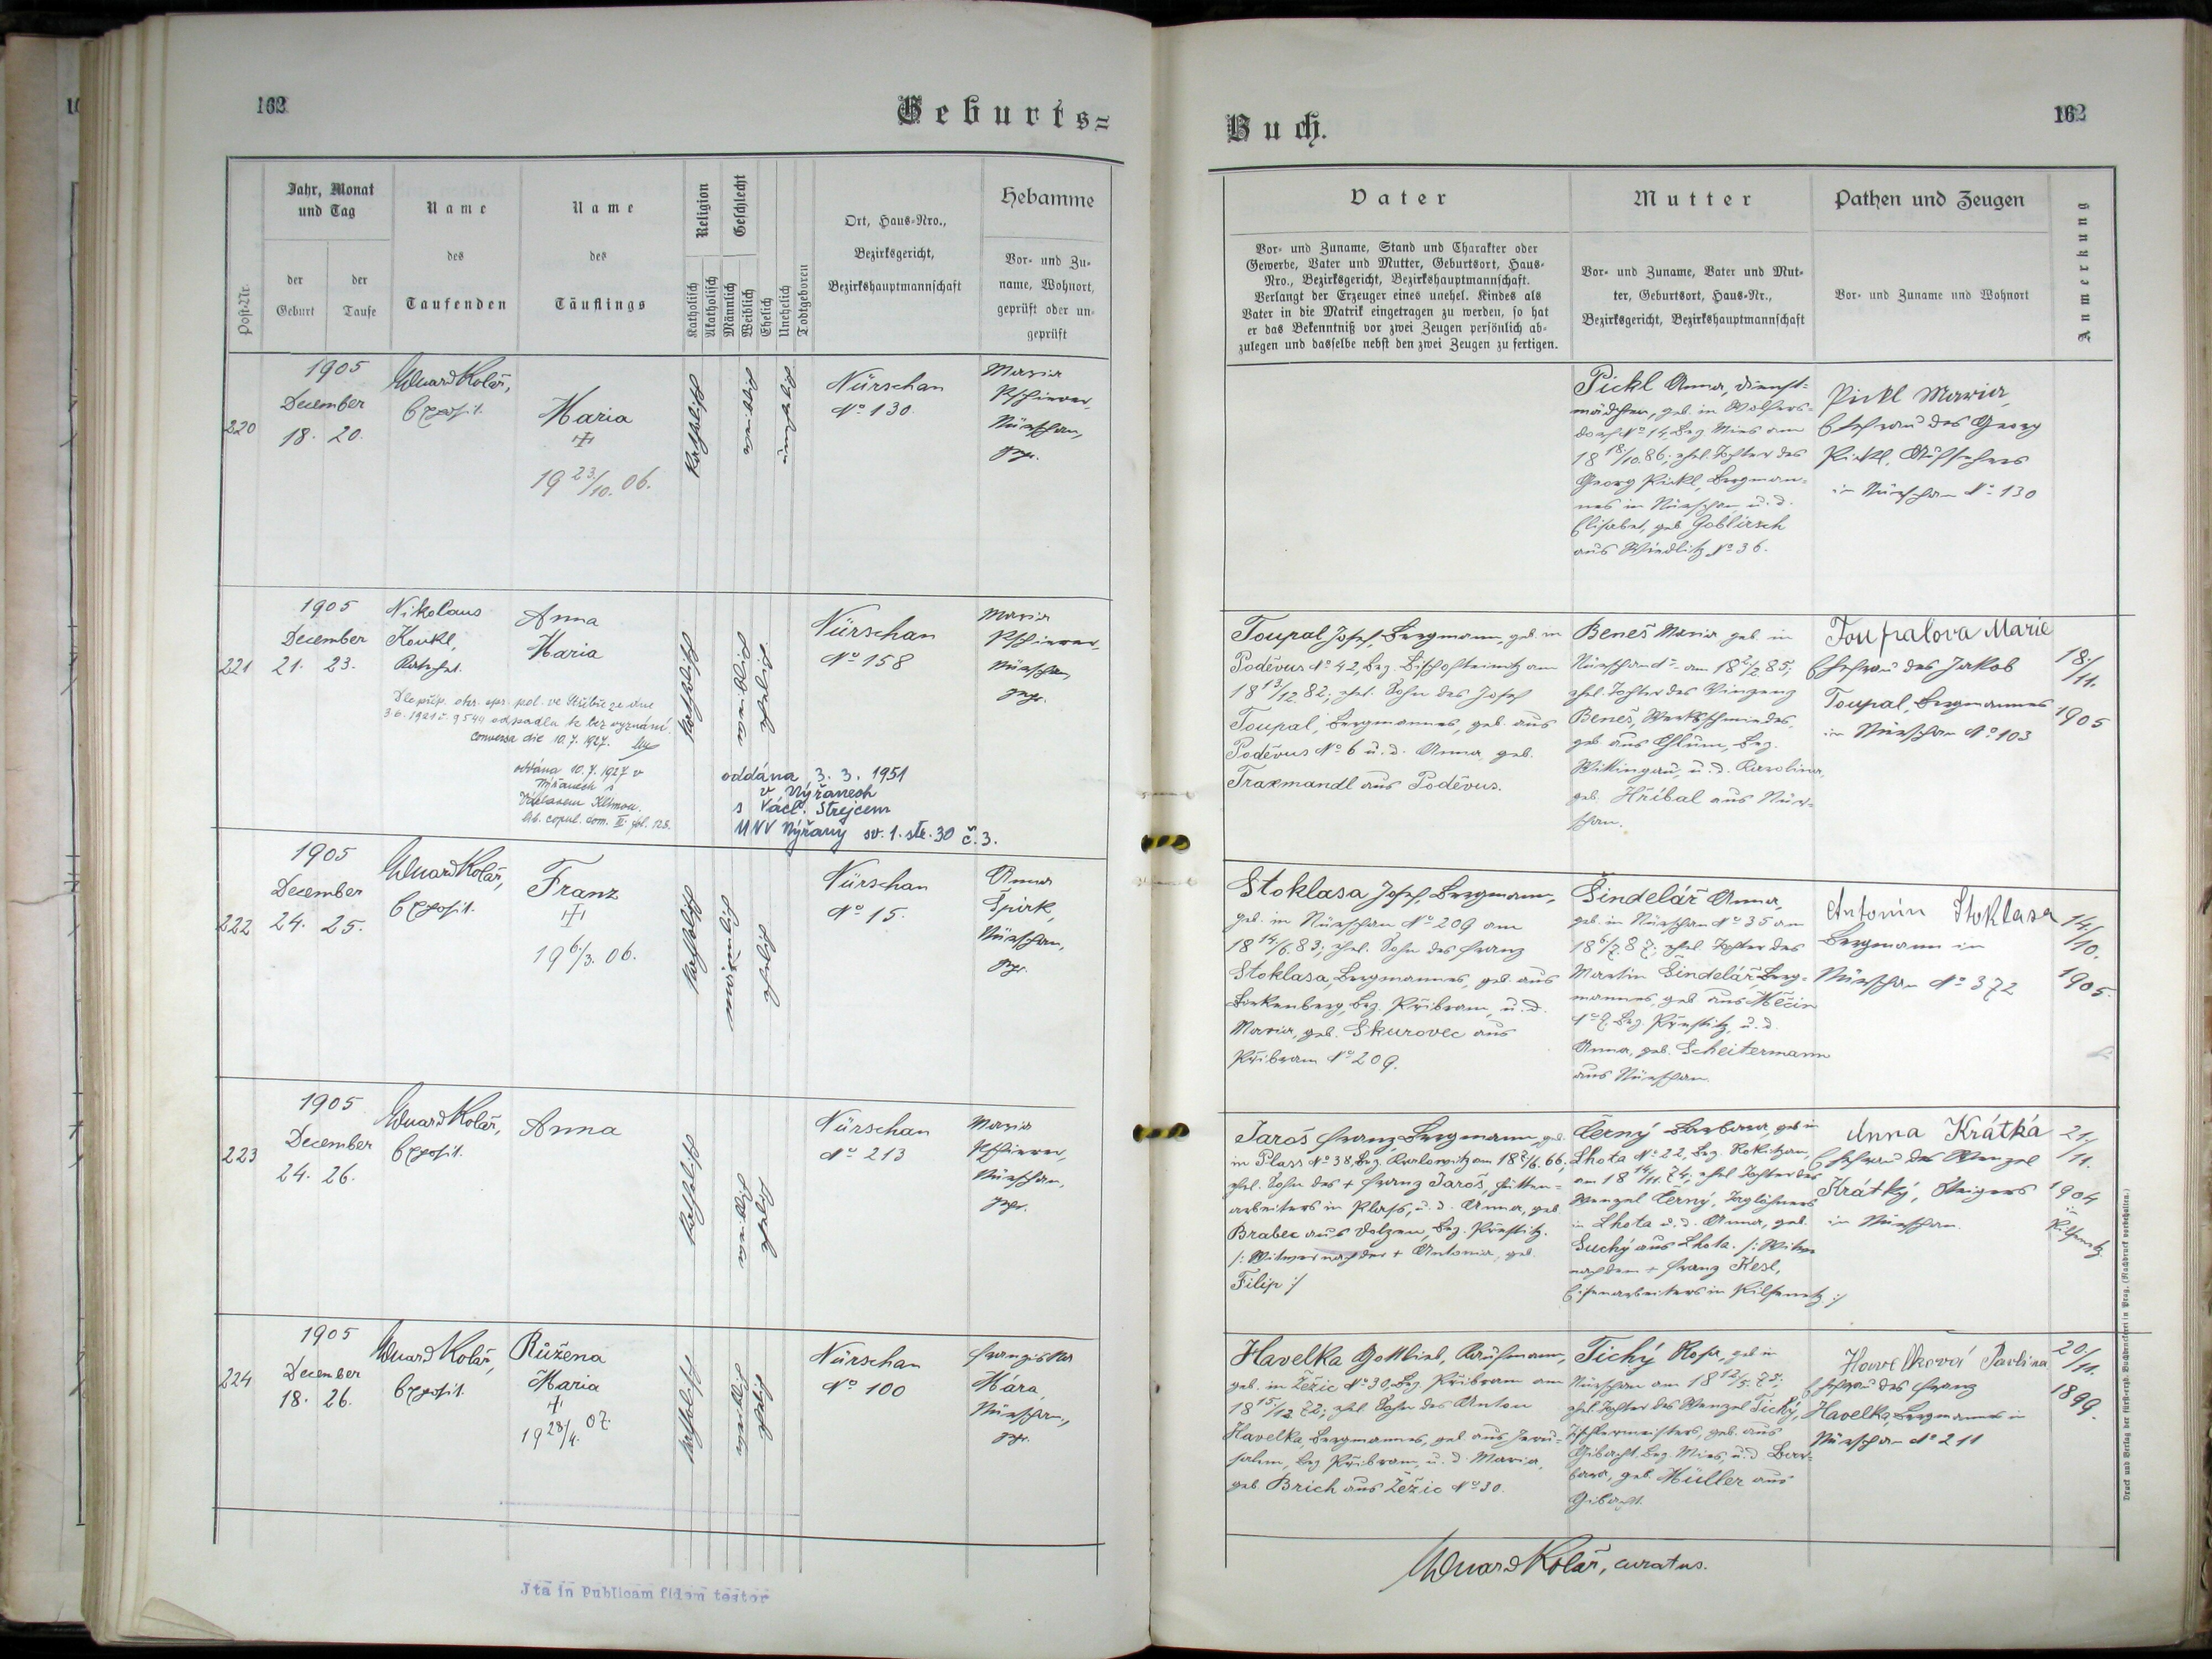 162
Geburts=
Jahr, Monat
und Tag
Name
Name
Religion
Geschlecht
Ort, Haus-Nro.,
Hebamme
des
des
Bezirksgericht,
Vor- und Zu-
name, Wohnort,
geprüft oder un-
geprüft
Post-Nr.
der
Geburt
der
Taufe
Taufenden
Täuflings
Katholisch
Akatholisch
Männlich
Weiblich
Ehelich
Unehelich
Todtgeboren
Bezirkshauptmannschaft
220
1905
December
18. 20.
Eduard Kolář,
Exposit.
Maria
19 23/10. 06.
katholisch
weiblich
unehelich
Nürschan
No 130.
Maria
Nürschan,
gepr.
221
1905
December
21. 23.
Nikolaus
Koukl,
Katechet.
Anna
Maria
katholisch
weiblich
ehelich
Nürschan
No 158
Maria
Nürschan,
gepr.
3.6.1921 č. 9544 odpadla k bez vyznání.
conversa die 10.7.1927.
oddána 10.7.1927 v
Nýřanech s
Václavem Klímou.
lib. copul. tom. III. fol. 128.
oddána 3. 3. 1951
v Nýřanech
s Václ. Strejcem
MNV Nýřany sv. 1. str. 30 č. 3.
222
1905
December
24. 25.
Eduard Kolář,
Exposit.
Franz
19 6/3. 06.
katholisch
männlich
ehelich
Nürschan
No 15.
Anna
Spirk,
Nürschan,
gepr.
223
1905
December
24. 26.
Eduard Kolář,
Exposit.
Anna
katholisch
weiblich
ehelich
Nürschan
No 213
Maria
Nürschan,
gepr.
224
1905
December
18. 26.
Eduard Kolář,
Exposit.
Růžena
Maria
19 28/4. 07.
katholisch
weiblich
ehelich
Nürschan
No 100
Franziska
Mára,
Nürschan,
gepr.
Ita in Publicam fidem testor
Buch.
162
Vater
Mutter
Pathen und Zeugen
Anmerkung
Vor- und Zuname, Stand und Charakter oder
Gewerbe, Vater und Mutter, Geburtsort, Haus-
Nro., Bezirksgericht, Bezirkshauptmannschaft.
Verlangt der Erzeuger eines unehel. Kindes als
Vater in die Matrik eingetragen zu werden, so hat
er das Bekenntniß vor zwei Zeugen persönlich ab-
zulegen und dasselbe nebst den zwei Zeugen zu fertigen.
Vor- und Zuname, Vater und Mut-
ter, Geburtsort, Haus-Nr.,
Bezirksgericht, Bezirkshauptmannschaft
Vor- und Zuname und Wohnort
Pickl Anna, Dienst-
mädchen, geb. in Wolfers-
dorf No 14, Bez. Mies am
18 18/10. 86; ehel. Tochter des
Georg Pickl, Bergman-
nes in Nürschan u. d.
Elisabet, geb. Goblirsch
aus No 36.
Pickl Maria,
Ehefrau des Georg
Pickl, Aufsehers
in Nürschan No 130
Toupal Josef, Bergmann, geb. in
Poděvus No 42, Bez. Bischofteinitz am
18 13/12 82; ehel. Sohn des Josef
Toupal, Bergmannes, geb. aus
Poděvus No 6 u. d. Anna, geb.
Traxmandl aus Poděvus.
Beneš Maria geb. in
Nürschan am 18 2/2 85;
ehel. Tochter des Vinzenz
Beneš, Werksschmiedes,
geb. aus Chlum, Bez.
Wittingau, u. d. Karolina,
geb. Hříbal aus Nür-
schan.
Toupalova Marie
Ehefrau des Jakob
Toupal, Bergmannes
in Nürschan No 103
18./11.
1905
Stoklasa Josef, Bergmann,
geb. in Nürschan No 209 am
18 14/6. 83; ehel. Sohn des Franz
Stoklasa, Bergmannes, geb. aus
Birkenberg, Bez. Přibram, u. d.
Maria, geb. Skurovec aus
Přibram No 209.
Šindelář Anna,
geb. in Nürschan No 35 am
18 6/7. 87; ehel. Tochter des
Martin Šindelář, Berg-
mannes, geb. aus Měčin
Bez. Přestitz, u. d.
Anna, geb. Scheitermann
aus Nürschan.
Antonín Stoklasa
Bergmann in
Nürschan No 372
14/10.
1905.
Jaroš Franz, Bergmann, geb.
in Plass No 38, Bez. Kralowitz am 18 2/6. 66;
ehel. Sohn des + Franz Jaroš, Hütten-
arbeiters in Plass, u. d. Anna, geb.
Brabec aus Dolzen, Bez. Přestitz.
/: Witwer nach der + Antonia, geb.
Filip :/
Černý Barbara, geb. in
Lhota No 22, Bez. Rokitzan,
am 18 14/11. 74; ehel. Tochter des
Wenzel Černý, Taglöhners
in Lhota u. d. Anna, geb.
Suchý aus Lhota. /: Witwe
nach dem + Franz Kesl,
Eisenarbeiters in Pilsenetz :/
Anna Krátká
Ehefrau des Wenzel
Krátký, Steigers
in Nürschan.
21/11.
1904
in
Pilsenetz
Havelka Gottlieb, Kaufmann,
geb. in Žežic No 30, Bez. Přibram am
18 15/12 72; ehel. Sohn des Anton
Havelka, Bergmannes, geb. aus Jeru-
salem, Bez. Přibram, u. d. Maria,
geb. Brich aus Žežic No 30.
Tichý Rosa, geb. in
Nürschan am 18 12/5. 78;
ehel. Tochter des Wenzel Tichý,
Tischlermeisters, geb. aus
Gibacht, Bez. Mies, u. d. Bar-
bara, geb. Müller aus
Gibacht.
Havelková Pavlina
Ehefrau des Franz
Havelka, Bergmannes in
Nürschan No 211
20/11.
1899.
Eduard Kolář, curatus.
Druck und Verlag der fürst-erzb. Buchdruckerei in Prag. (Nachdruck vorbehalten.)